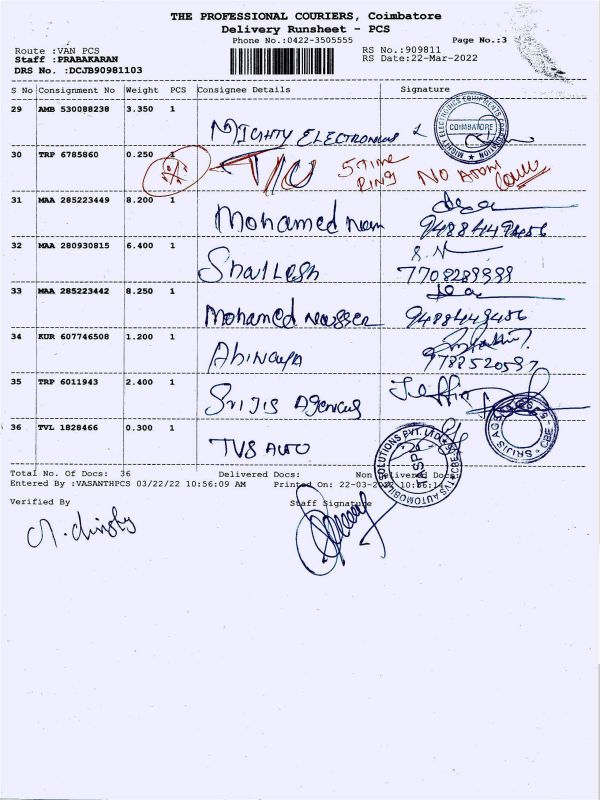 THE PROFESSIONAL COURIERS, Coimbatore
Delivery Runsheet - PCS
Phone No.:0422-3505555 Page No.:3
Route :VAN PCS RS No.:909811
Staff :PRABAKARAN RS Date:22-Mar-2022
DRS No. :DCJB90981103
S No Consignment No Weight PCS Consignee Details Signature
29 AMB 530088238 3.350 1
MIGHTY ELECTRONICS
MIGHTY ELECTRONICS EQUIPMENTS CORPORATION
COIMBATORE
30 TRP 6785860 0.250 1
5 Time
RING
NO
31 MAA 285223449 8.200 1
Mohamed
32 MAA 280930815 6.400 1
Shailesh
7708289999
33 MAA 285223442 8.250 1
Mohamed Nasser
34 KUR 607746508 1.200 1
Abinaya
35 TRP 6011943 2.400 1
Srijis Agencies
36 TVL 1828466 0.300 1
TVS AUTO
TVS AUTOMOBILE SOLUTIONS PVT. LTD
Total No. Of Docs: 36 Delivered Docs: Non Delivered Docs:
Entered By :VASANTHPCS 03/22/22 10:56:09 AM Printed On: 22-03-2022 10:56:14
Verified By Staff Signature